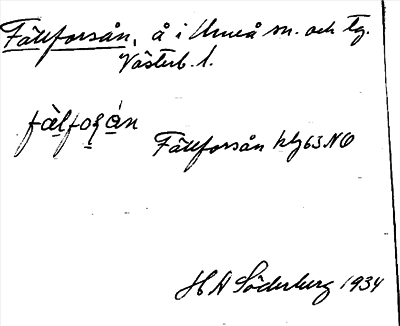 Fällforsån, å i Umeå sn. och tg.
Västerb. l.
fälfoṣån
Fällforsån kbl 63 NO
H A Söderberg 1934